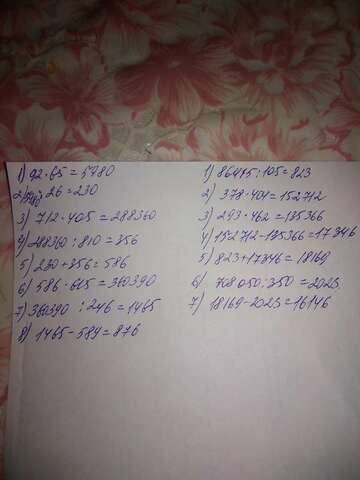 1) 92·65=5980
2) 5980:26=230
3) 712·405=288360
4) 288360:810=356
5) 230+356=586
6) 586·615=360390
7) 360390:246=1465
8) 1465-589=876
1) 86415:105=823
2) 378·404=152712
3) 293·462=135366
4) 152712-135366=17346
5) 823+17346=18169
6) 708050:350=2023
7) 18169-2023=16146